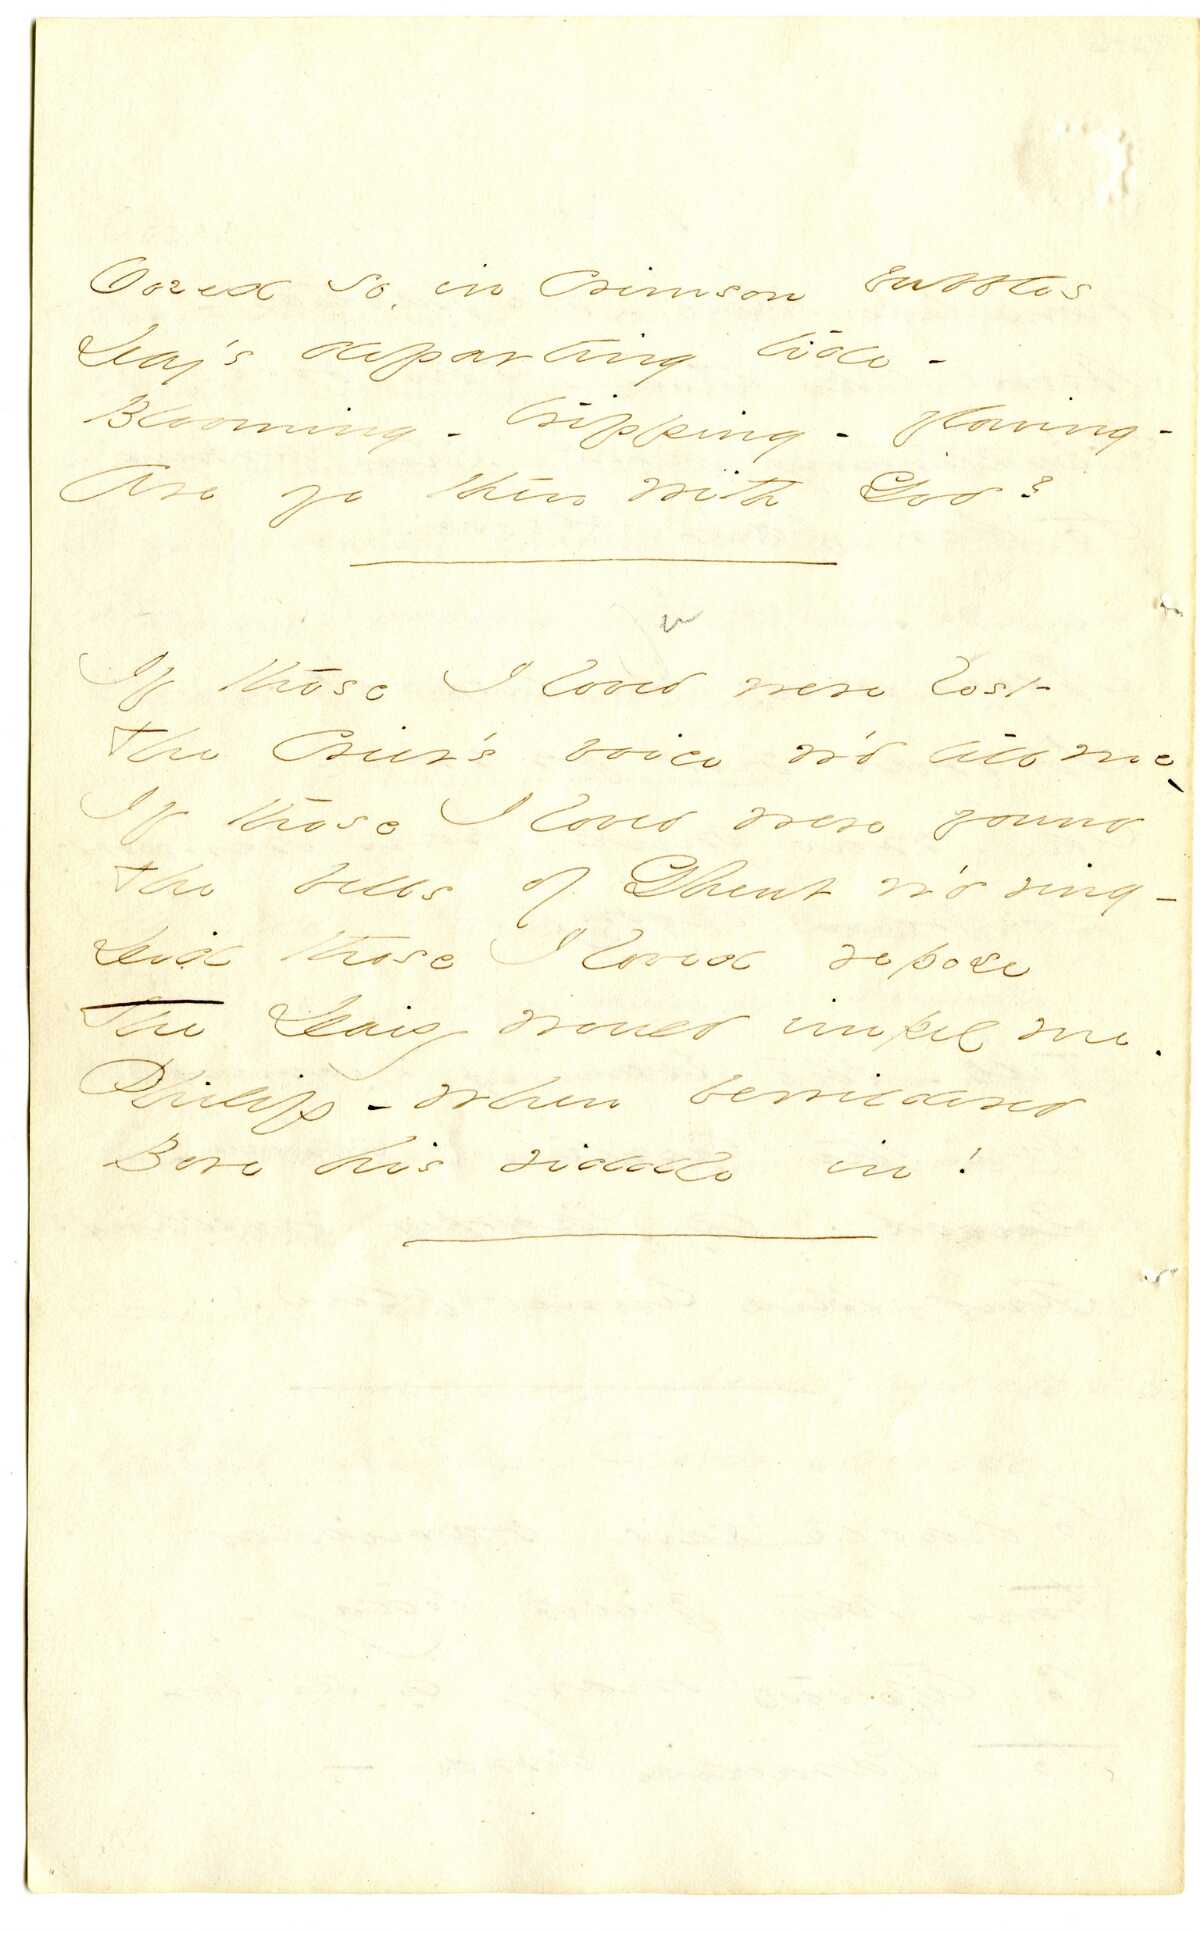 Oozed so, in Crimson bubbles
Day's departing tide -
Blooming - tripping - flowing -
Are ye then with God?
If those I loved were lost
the Crier's voice w'd tell me,
If those I loved were found
the bells of Ghent w'd ring -
Did those I loved repose
The Daisy would impel me.
Philip - when bewildered
Bore his riddle in!